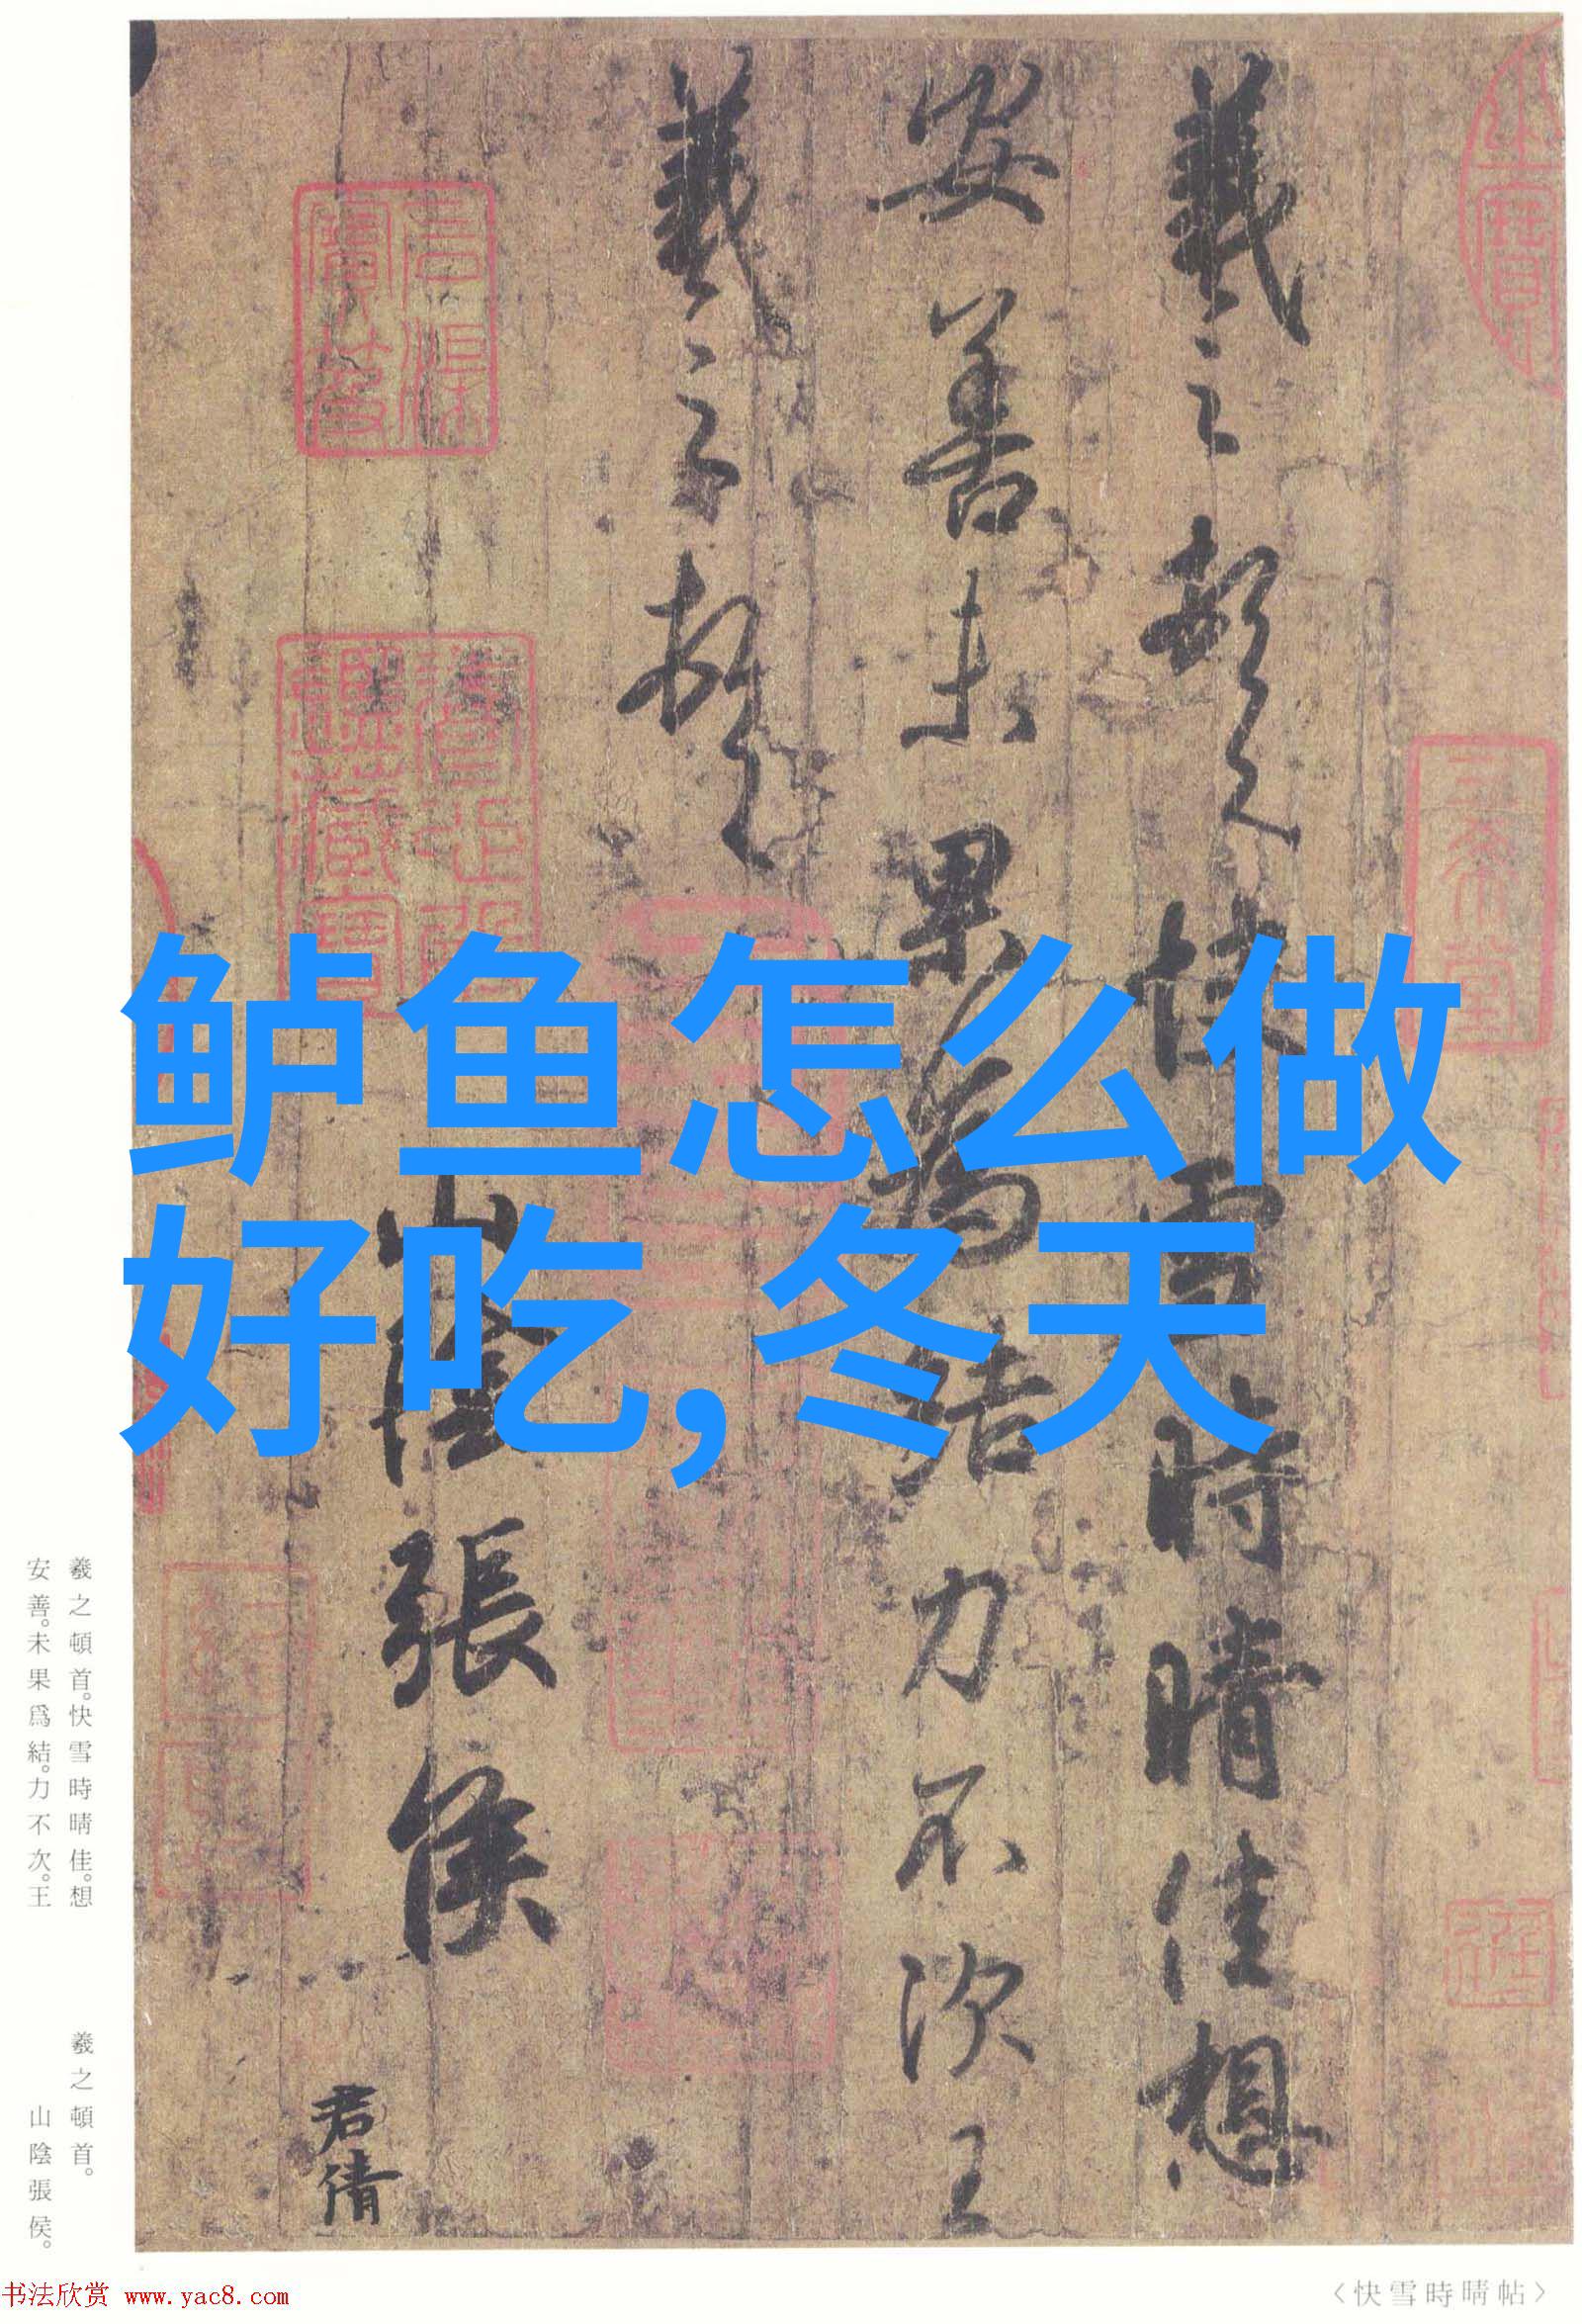 羲之頓首快雪時晴佳想
安善未果為結力不次王
羲之頓首
山陰張侯
君倩
鲈鱼怎么做
好吃,冬天
三希堂
羲之頓首。快雪時晴佳。想
安善。未果爲結。力不次。王
羲之頓首。
山陰張侯。
书法欣赏 www.yac8.com
〈快雪時晴帖〉